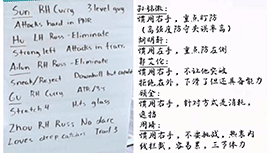 Sun RH Curry 3 level guy
Attacks hard in PNR
Hu LH Russ - Eliminate
Strong left Attacks in trans.
Ailun RH Russ - Eliminate
Sneak/Reject Downhill but capable
Gu RH Curry ATR/3s
Stretch 4 Hits glass
Zhou RH Russ No dare
Loves deep catches Trail 3
孙铭徽:
惯用右手,重点盯防
(高强度防守失误率高)
胡明轩:
惯用左手,重点防左侧
郭艾伦:
惯用右手,不让他突破
拒绝右外,下滑了但还具备能力
顾全:
惯用右手,针对方式是消耗,
追挡
周琦:
惯用右手,不要挑战,熟禁内
线拦截,容易累,三节体力